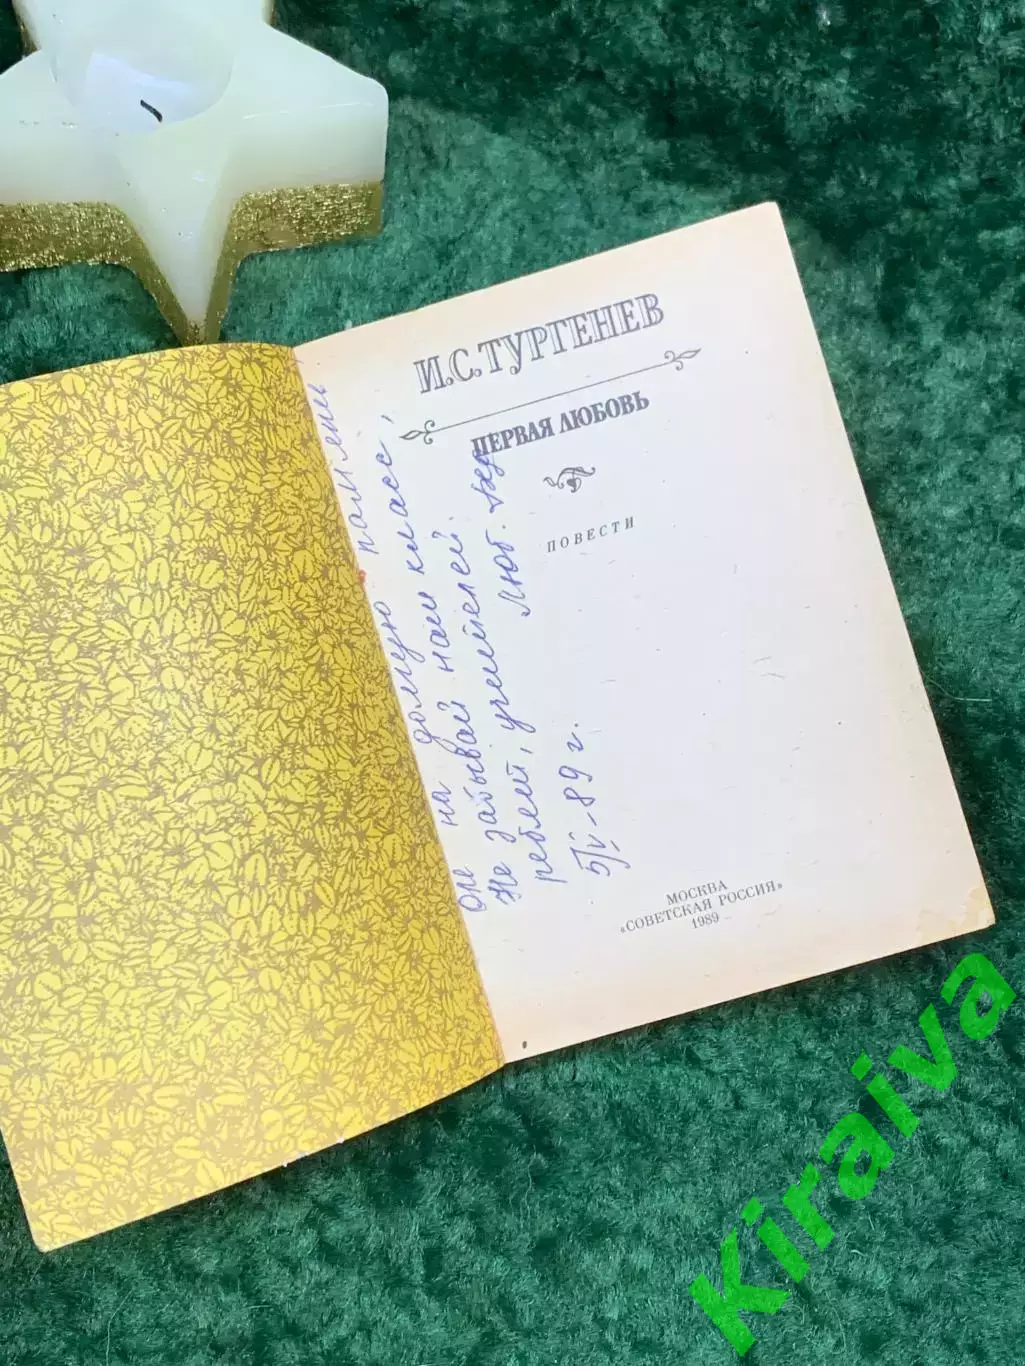 И.С.ТУРГЕНЕВ
ПЕРВАЯ ЛЮБОВЬ
ПОВЕСТИ
МОСКВА
«СОВЕТСКАЯ РОССИЯ»
1989
Оле на долгую память
Не забывай наш класс,
ребят, учителей.
Люб.
5/V-89 г.
Kiraiva